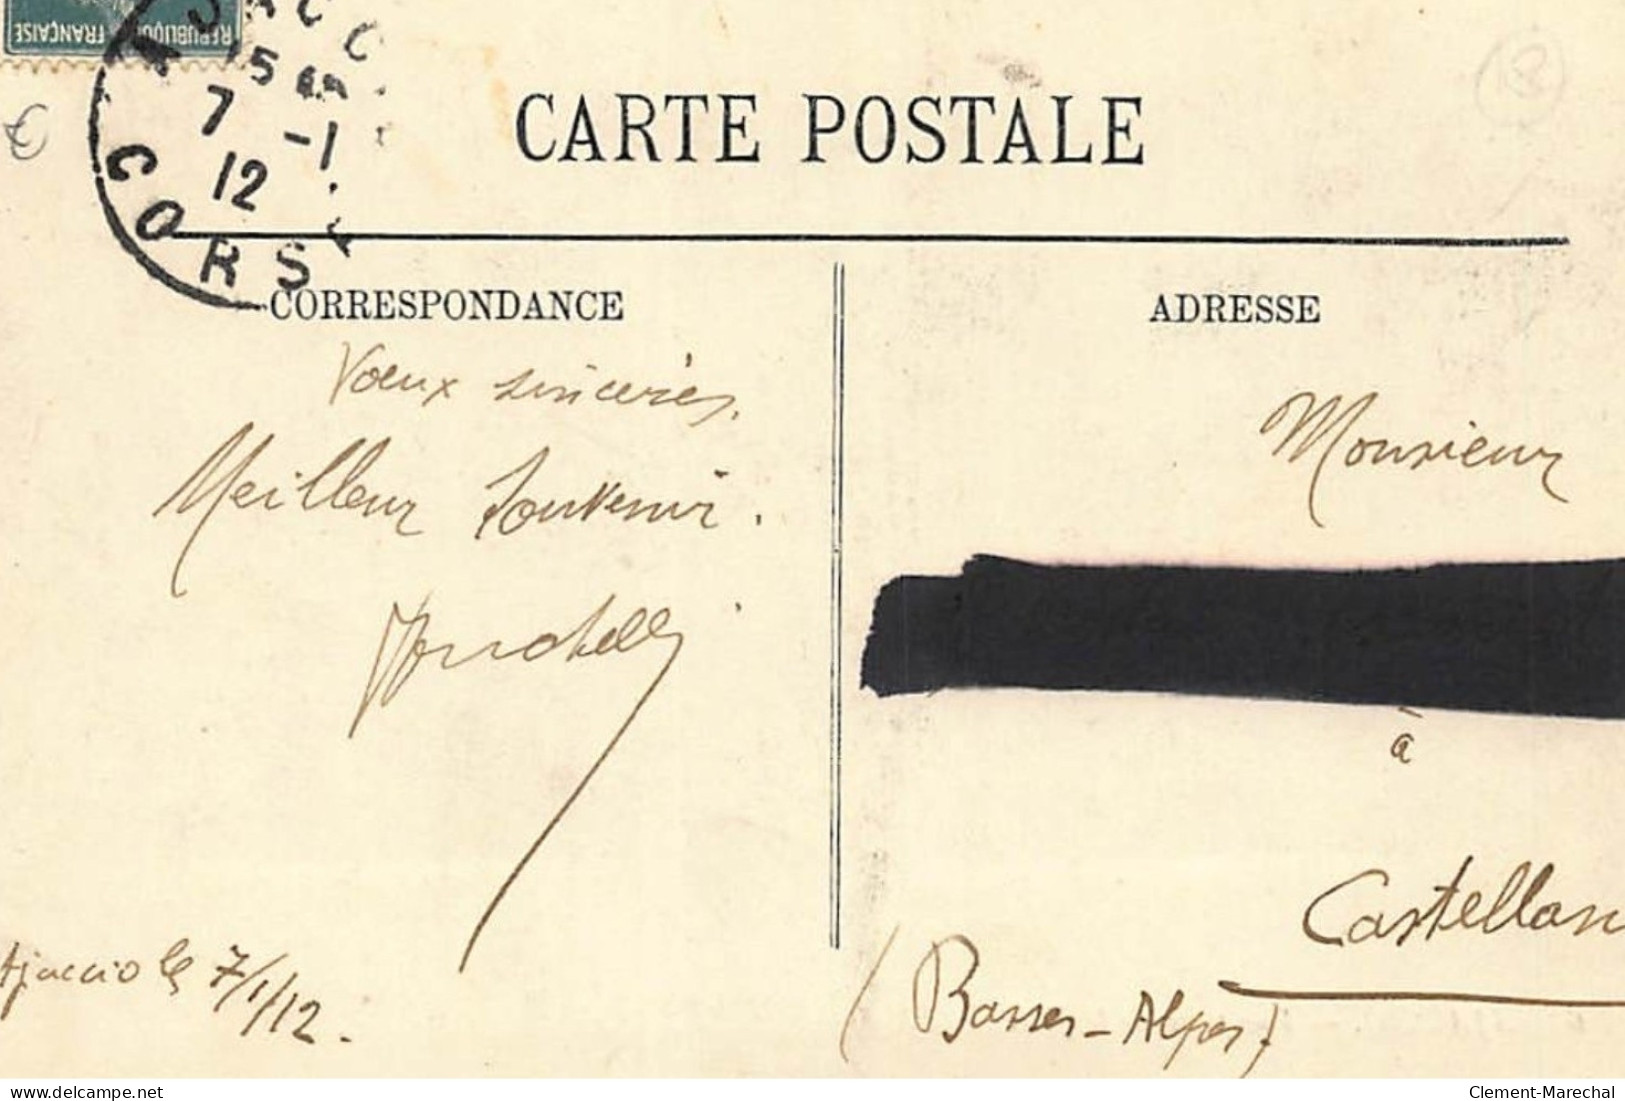 REPUBLIQUE FRANÇAISE
AJACC
15
7 -1
12
CORSE
18
CARTE POSTALE
CORRESPONDANCE
ADRESSE
Voeux sincères.
Meilleur Souvenir.
Monsieur
à
Castellan
(Basses-Alpes)
Ajaccio le 7/1/12.
www.delcampe.net
Clement-Marechal